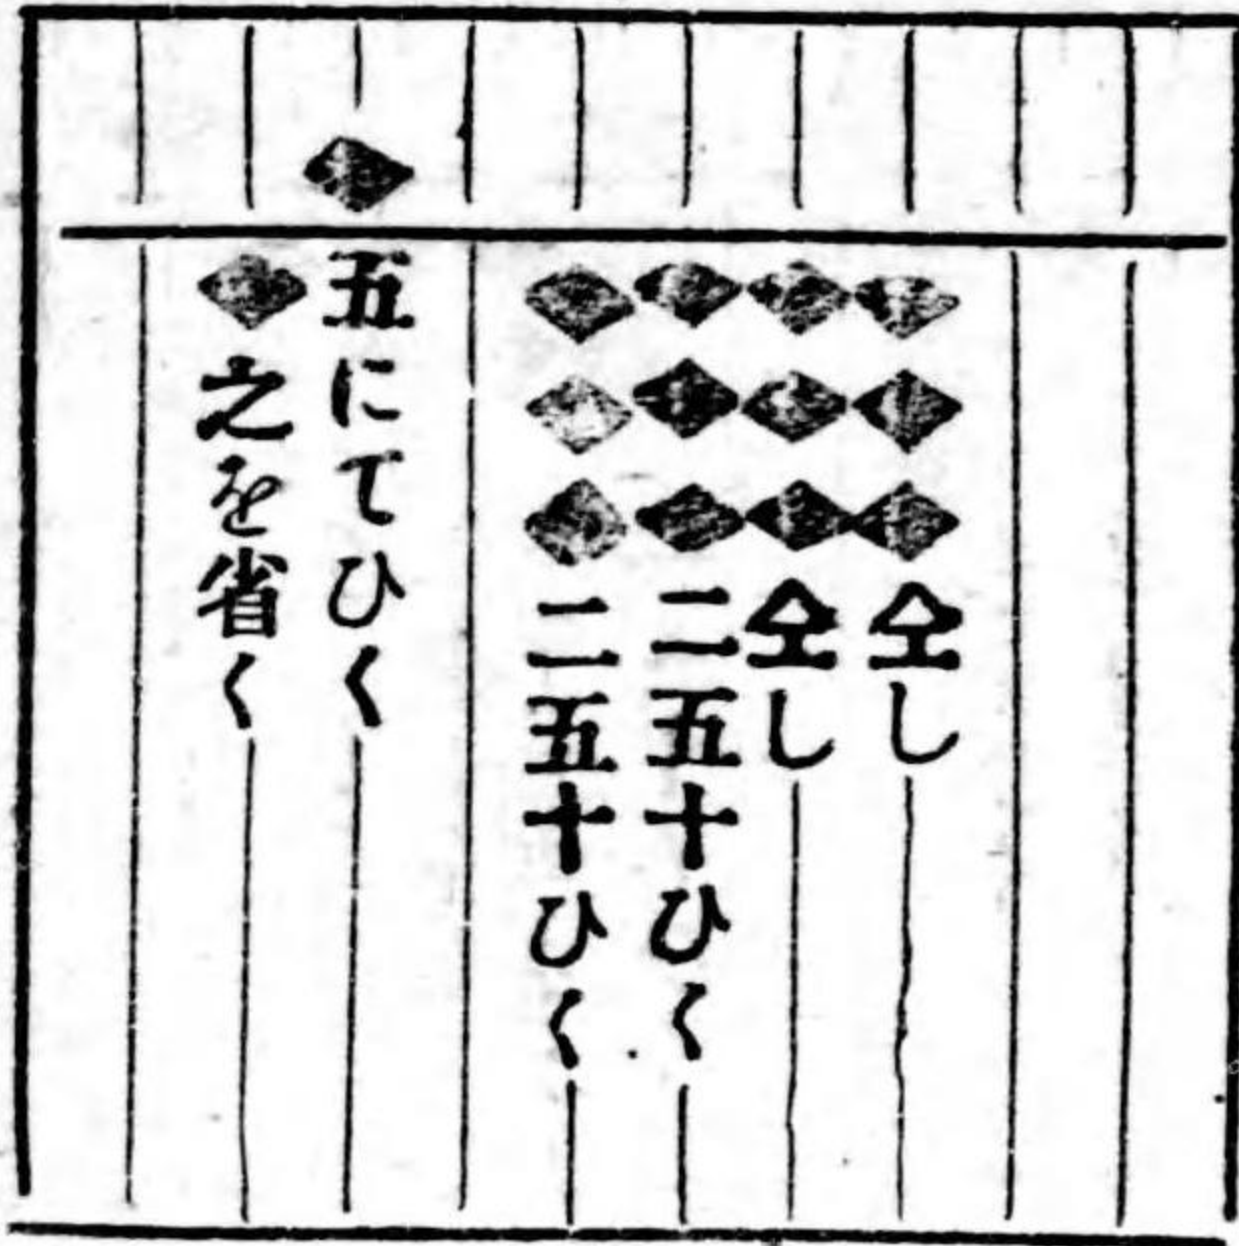 仝し
仝し
二五十ひく
二五十ひく
五にてひく
之を省く